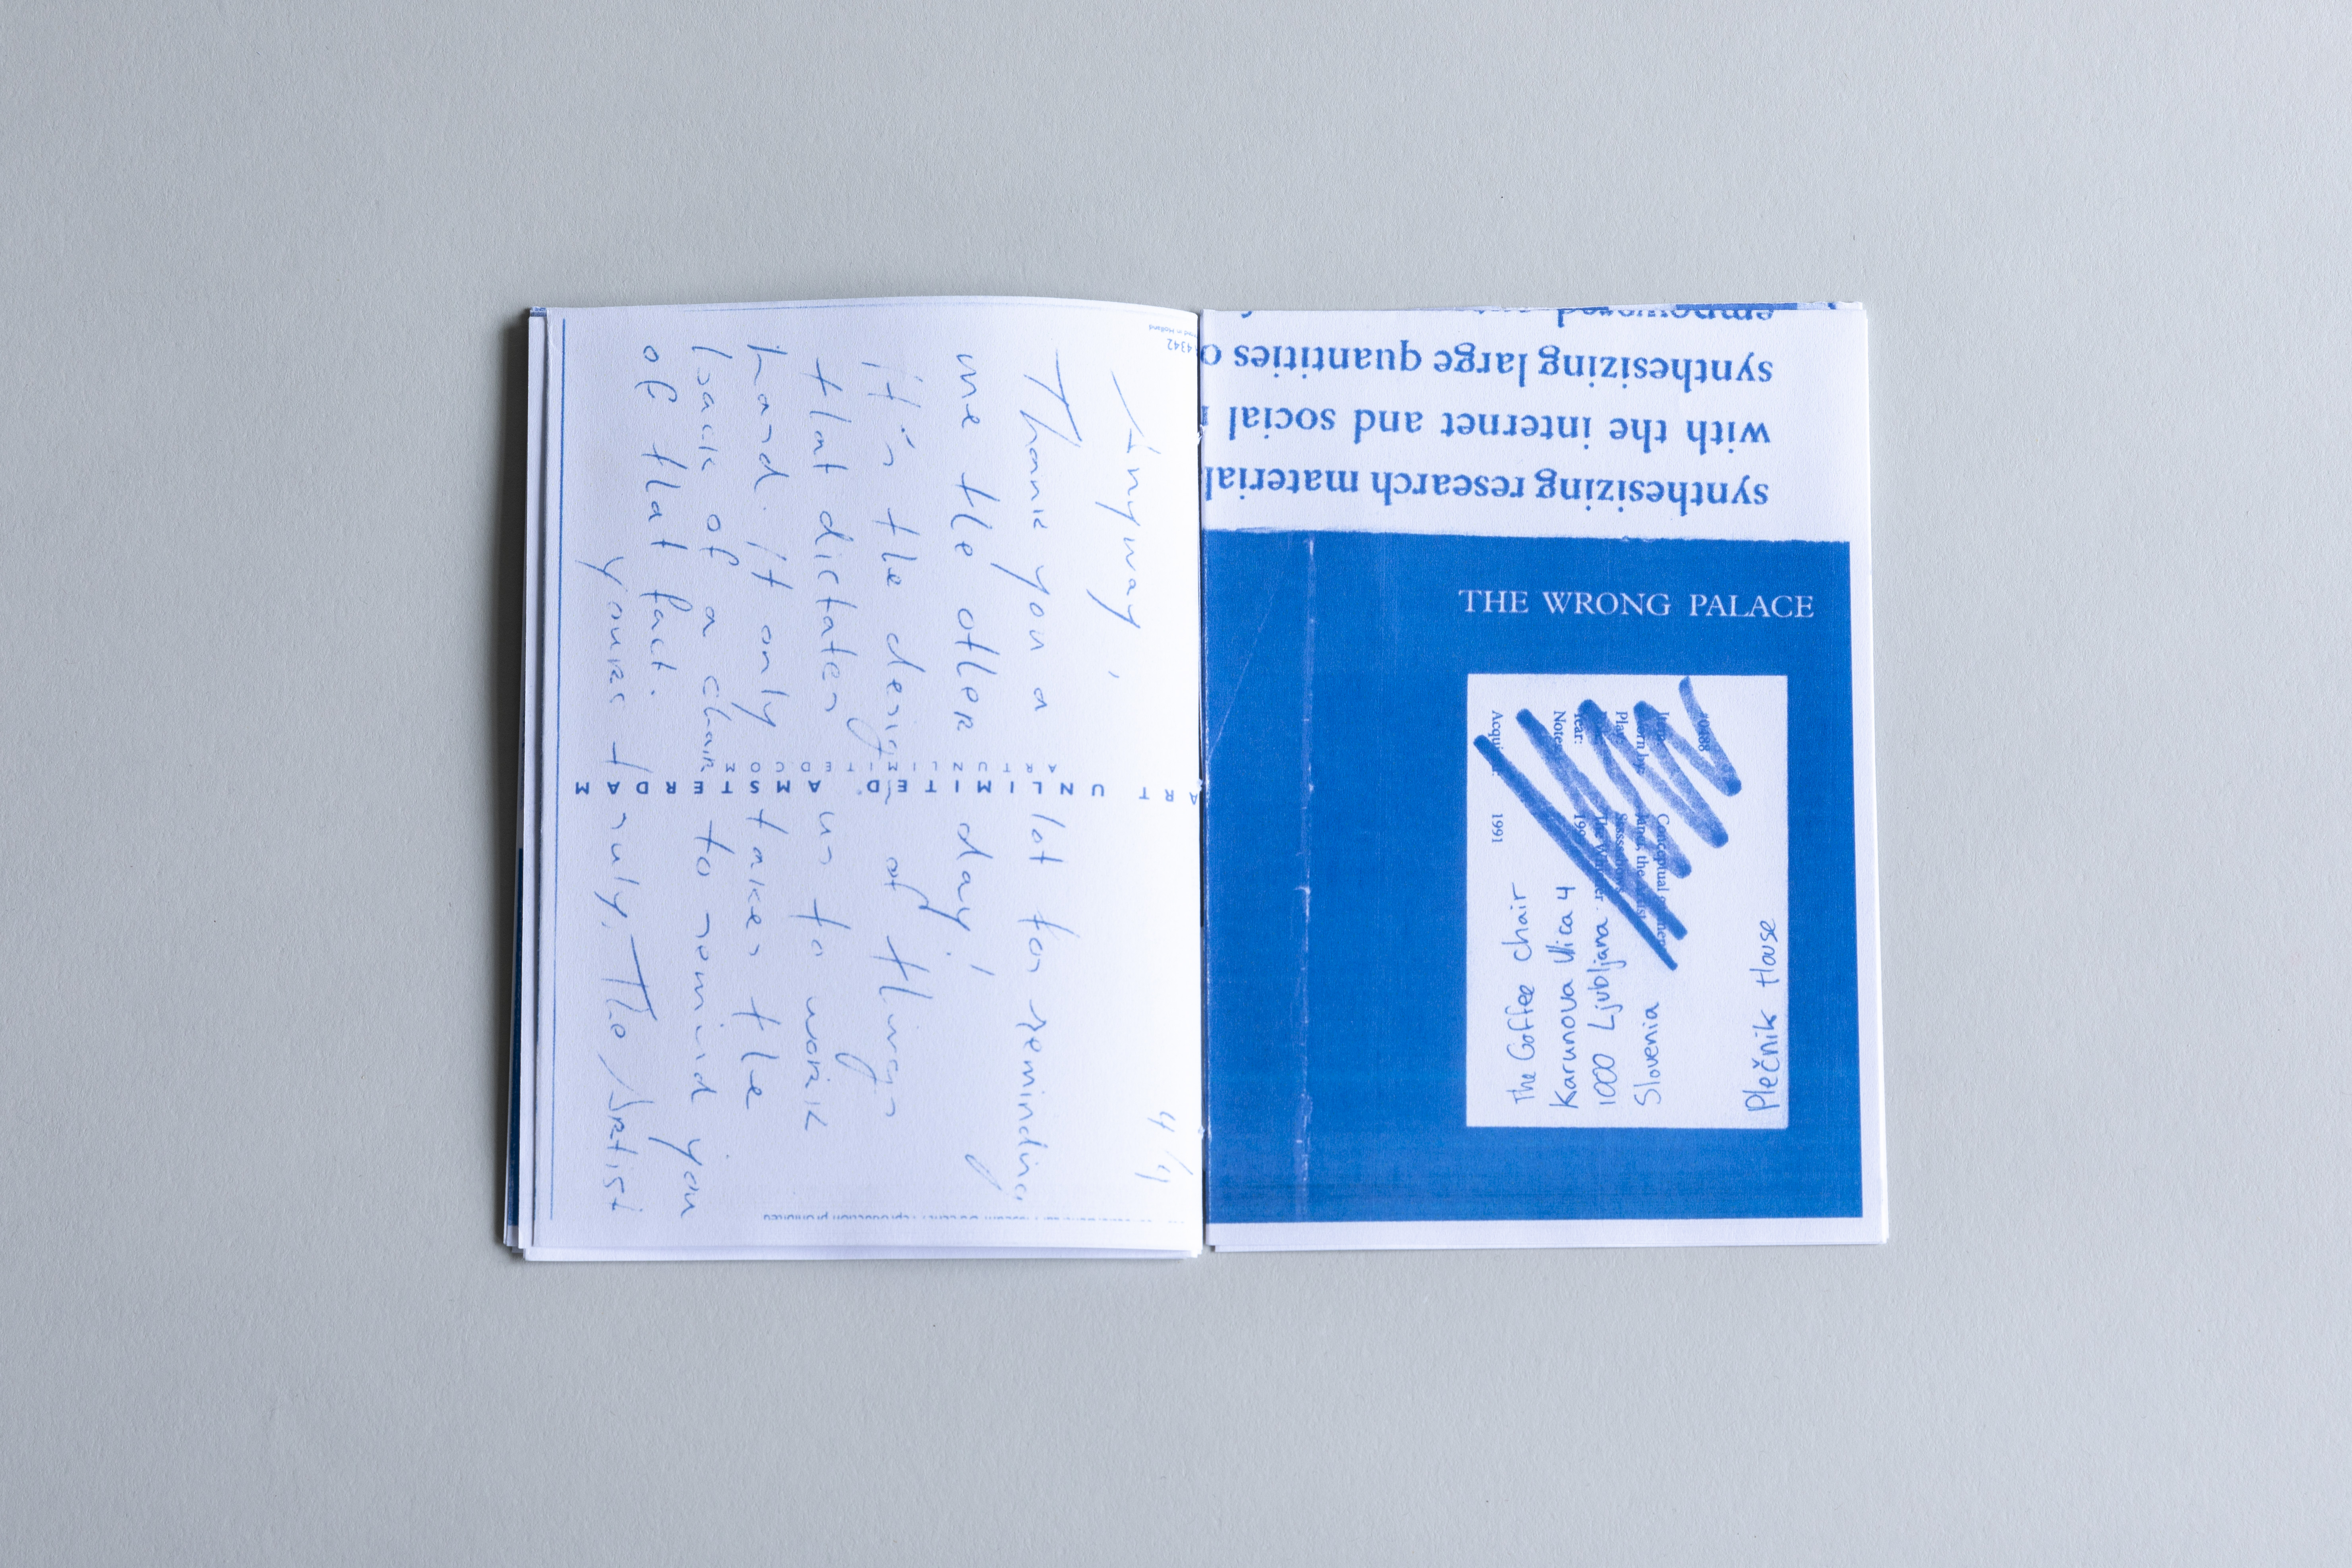 Anyway,
Thank you a lot for reminding
me the other day!
it's the design of things
that dictates us to work
hard. It only takes the
back of a chair to remind you
of that fact.
yours truly, The Artist
4/4
4342
ART UNLIMITED AMSTERDAM
ARTUNLIMITED.COM
reproduction prohibited
synthesizing research material
with the internet and social
synthesizing large quantities
empowered
THE WRONG PALACE
Plečnik House
The Coffee chair
Karunova Ulica 4
1000 Ljubljana
Slovenia
Conceptual
Year:
1991